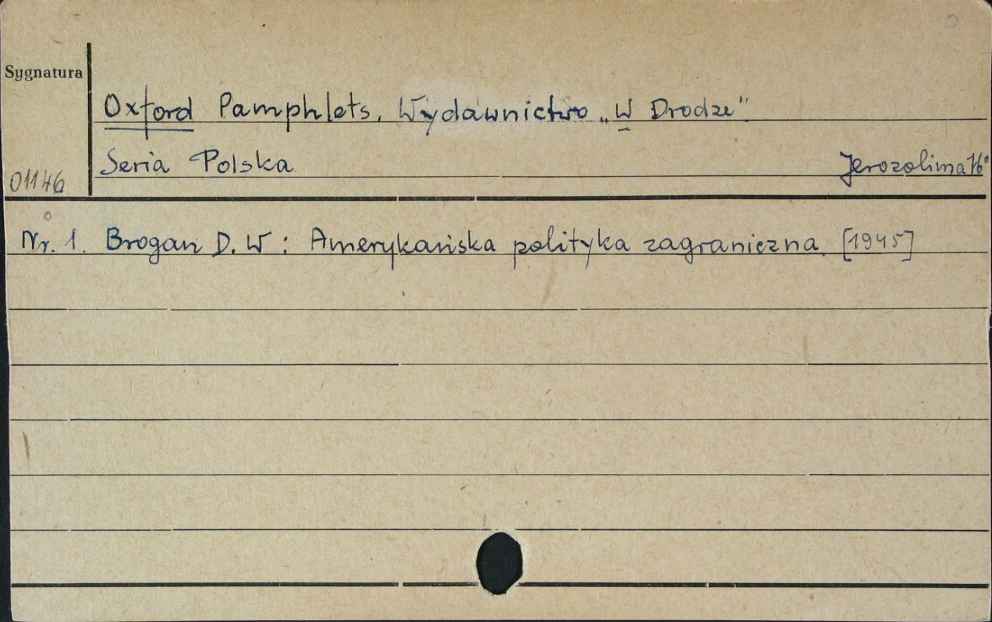 Sygnatura
Oxford Pamphlets. Wydawnictwo „W Drodze"
Seria Polska Jerozolima 16°
01146
Nr. 1. Brogan D. W : Amerykańska polityka zagraniczna. [1945]